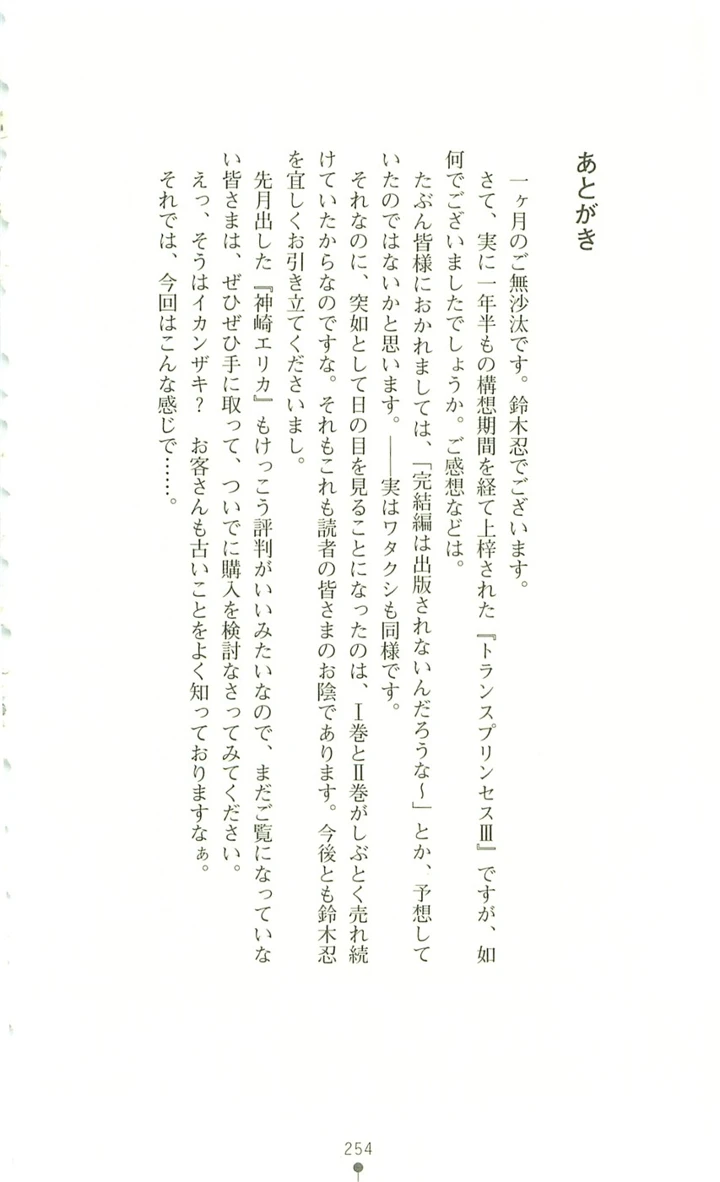 あとがき
一ヶ月のご無沙汰です。鈴木忍でございます。
さて、実に一年半もの構想期間を経て上梓された『トランスプリンセスⅢ』ですが、如
何でございましたでしょうか。ご感想などは。
たぶん皆様におかれましては、「完結編は出版されないんだろうな～」とか、予想して
いたのではないかと思います。――実はワタクシも同様です。
それなのに、突如として日の目を見ることになったのは、Ⅰ巻とⅡ巻がしぶとく売れ続
けていたからなのですな。それもこれも読者の皆さまのお陰であります。今後とも鈴木忍
を宜しくお引き立てくださいまし。
先月出した『神崎エリカ』もけっこう評判がいいみたいなので、まだご覧になっていな
い皆さまは、ぜひぜひ手に取って、ついでに購入を検討なさってみてください。
えっ、そうはイカンザキ？　お客さんも古いことをよく知っておりますなぁ。
それでは、今回はこんな感じで……。
254